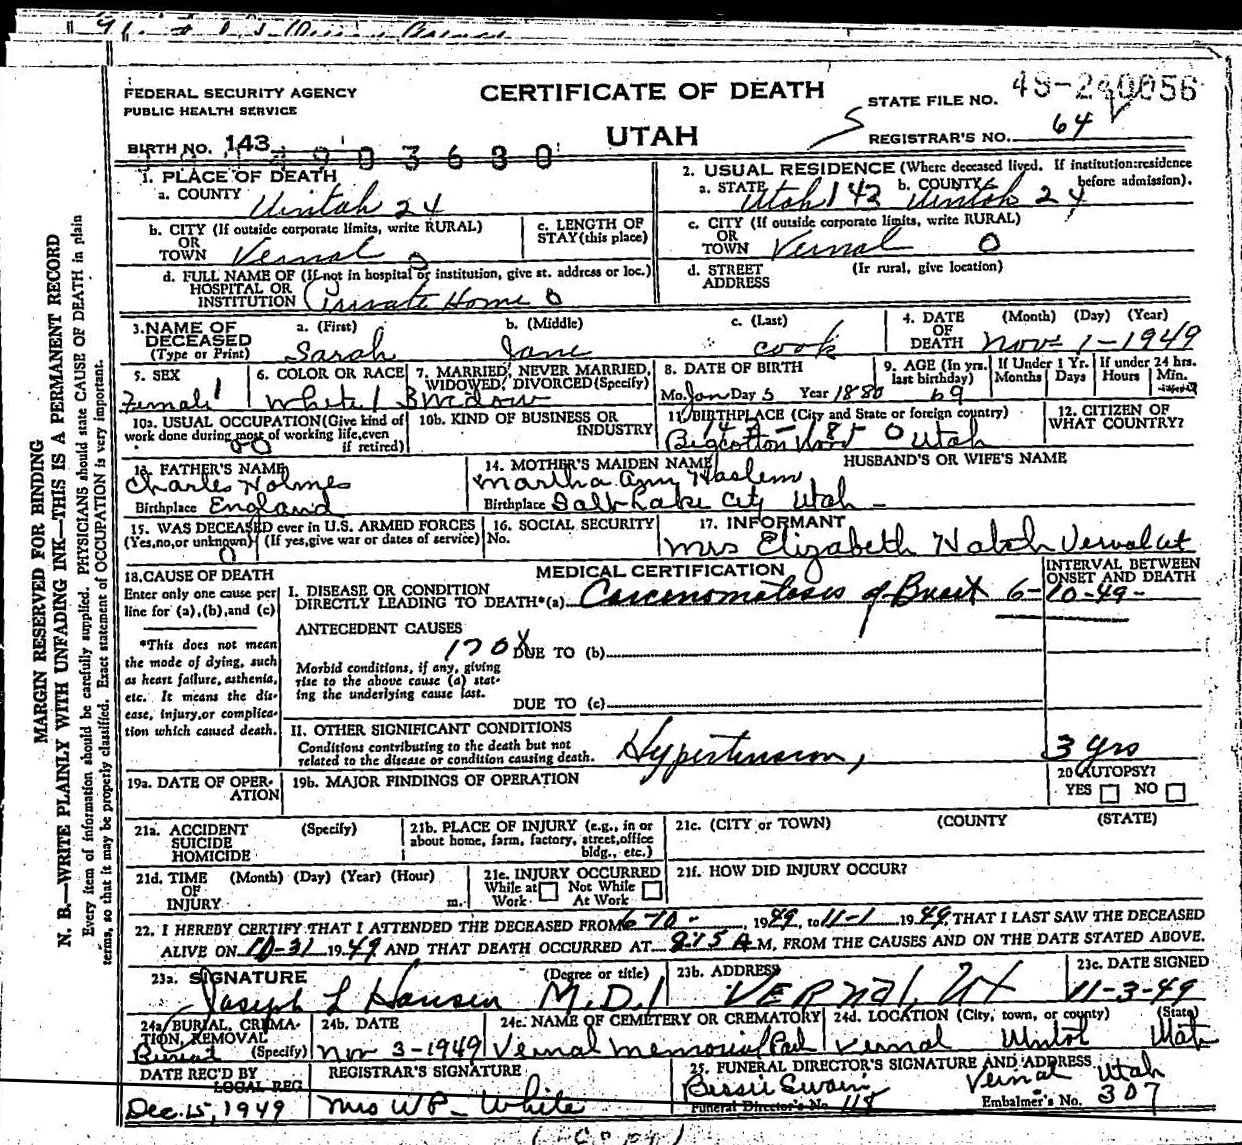 FEDERAL SECURITY AGENCY
PUBLIC HEALTH SERVICE
CERTIFICATE OF DEATH
UTAH
STATE FILE NO. 49-240056
REGISTRAR'S NO. 64
BIRTH NO. 143 4903680
1. PLACE OF DEATH
a. COUNTY Uintah 24
b. CITY (If outside corporate limits, write RURAL)
OR
TOWN Vernal 0
c. LENGTH OF
STAY (this place)
d. FULL NAME OF (If not in hospital or institution, give st. address or loc.)
HOSPITAL OR
INSTITUTION Private Home 0
2. USUAL RESIDENCE (Where deceased lived. If institution:residence
before admission).
a. STATE Utah 143 b. COUNTY Uintah 24
c. CITY (If outside corporate limits, write RURAL)
OR
TOWN Vernal 0
d. STREET (If rural, give location)
ADDRESS
3. NAME OF DECEASED (Type or Print)
a. (First) Sarah b. (Middle) Jane c. (Last) Cook
4. DATE OF DEATH (Month) (Day) (Year) Nov 1-1949
5. SEX Female 1
6. COLOR OR RACE White 1
7. MARRIED, NEVER MARRIED,
WIDOWED, DIVORCED (Specify) 3 Widow
8. DATE OF BIRTH
Mo. Jan Day 5 Year 1880
9. AGE (In yrs. last birthday) 69
If Under 1 Yr. Months Days
If under 24 hrs. Hours Min.
10a. USUAL OCCUPATION (Give kind of
work done during most of working life, even
if retired)
10b. KIND OF BUSINESS OR
INDUSTRY
11. BIRTHPLACE (City and State or foreign country)
Bigcottonwood Utah
12. CITIZEN OF
WHAT COUNTRY?
13. FATHER'S NAME
Charles Holmes
Birthplace England
14. MOTHER'S MAIDEN NAME
Martha Ann Haslem
Birthplace Salt Lake City Utah -
HUSBAND'S OR WIFE'S NAME
15. WAS DECEASED ever in U.S. ARMED FORCES
(Yes, no, or unknown) (If yes, give war or dates of service)
0
16. SOCIAL SECURITY
No.
17. INFORMANT
Mrs Elizabeth Hatch Vernal Ut
MEDICAL CERTIFICATION
INTERVAL BETWEEN
ONSET AND DEATH
18. CAUSE OF DEATH
Enter only one cause per
line for (a), (b), and (c)
*This does not mean
the mode of dying, such
as heart failure, asthenia,
etc. It means the dis-
ease, injury, or complica-
tion which caused death.
I. DISEASE OR CONDITION
DIRECTLY LEADING TO DEATH*(a) Carcenomatosis of Breast 6-10-49-
ANTECEDENT CAUSES
170X DUE TO (b)
Morbid conditions, if any, giving
rise to the above cause (a) stat-
ing the underlying cause last.
DUE TO (c)
II. OTHER SIGNIFICANT CONDITIONS
Conditions contributing to the death but not
related to the disease or condition causing death.
Hypertension, 3 yrs
19a. DATE OF OPER-
ATION
19b. MAJOR FINDINGS OF OPERATION
20 AUTOPSY?
YES NO
21a. ACCIDENT (Specify)
SUICIDE
HOMICIDE
21b. PLACE OF INJURY (e.g., in or
about home, farm, factory, street, office
bldg., etc.)
21c. (CITY or TOWN) (COUNTY) (STATE)
21d. TIME (Month) (Day) (Year) (Hour)
OF
INJURY m.
21e. INJURY OCCURRED
While at Work Not While At Work
21f. HOW DID INJURY OCCUR?
22. I HEREBY CERTIFY THAT I ATTENDED THE DECEASED FROM 6-10-, 1949, to 11-1 1949, THAT I LAST SAW THE DECEASED
ALIVE ON 10-31 1949 AND THAT DEATH OCCURRED AT 8:15 A M, FROM THE CAUSES AND ON THE DATE STATED ABOVE.
23a. SIGNATURE (Degree or title)
Joseph L Hansen M.D.
23b. ADDRESS
VERNAL, Ut
23c. DATE SIGNED
11-3-49
24a. BURIAL, CREMA-
TION, REMOVAL
(Specify) Burial
24b. DATE
Nov 3-1949
24c. NAME OF CEMETERY OR CREMATORY
Vernal Memorial Park
24d. LOCATION (City, town, or county) (State)
Vernal Uintah Utah
DATE REC'D BY
LOCAL REG
Dec. 15, 1949
REGISTRAR'S SIGNATURE
Mrs W P White
25. FUNERAL DIRECTOR'S SIGNATURE AND ADDRESS
Bessie Swain Vernal Utah
Funeral Director's No. 118 Embalmer's No. 307
(Copy)
MARGIN RESERVED FOR BINDING
N. B.—WRITE PLAINLY WITH UNFADING INK—THIS IS A PERMANENT RECORD
Every item of information should be carefully supplied. PHYSICIANS should state CAUSE OF DEATH in plain
terms, so that it may be properly classified. Exact statement of OCCUPATION is very important.